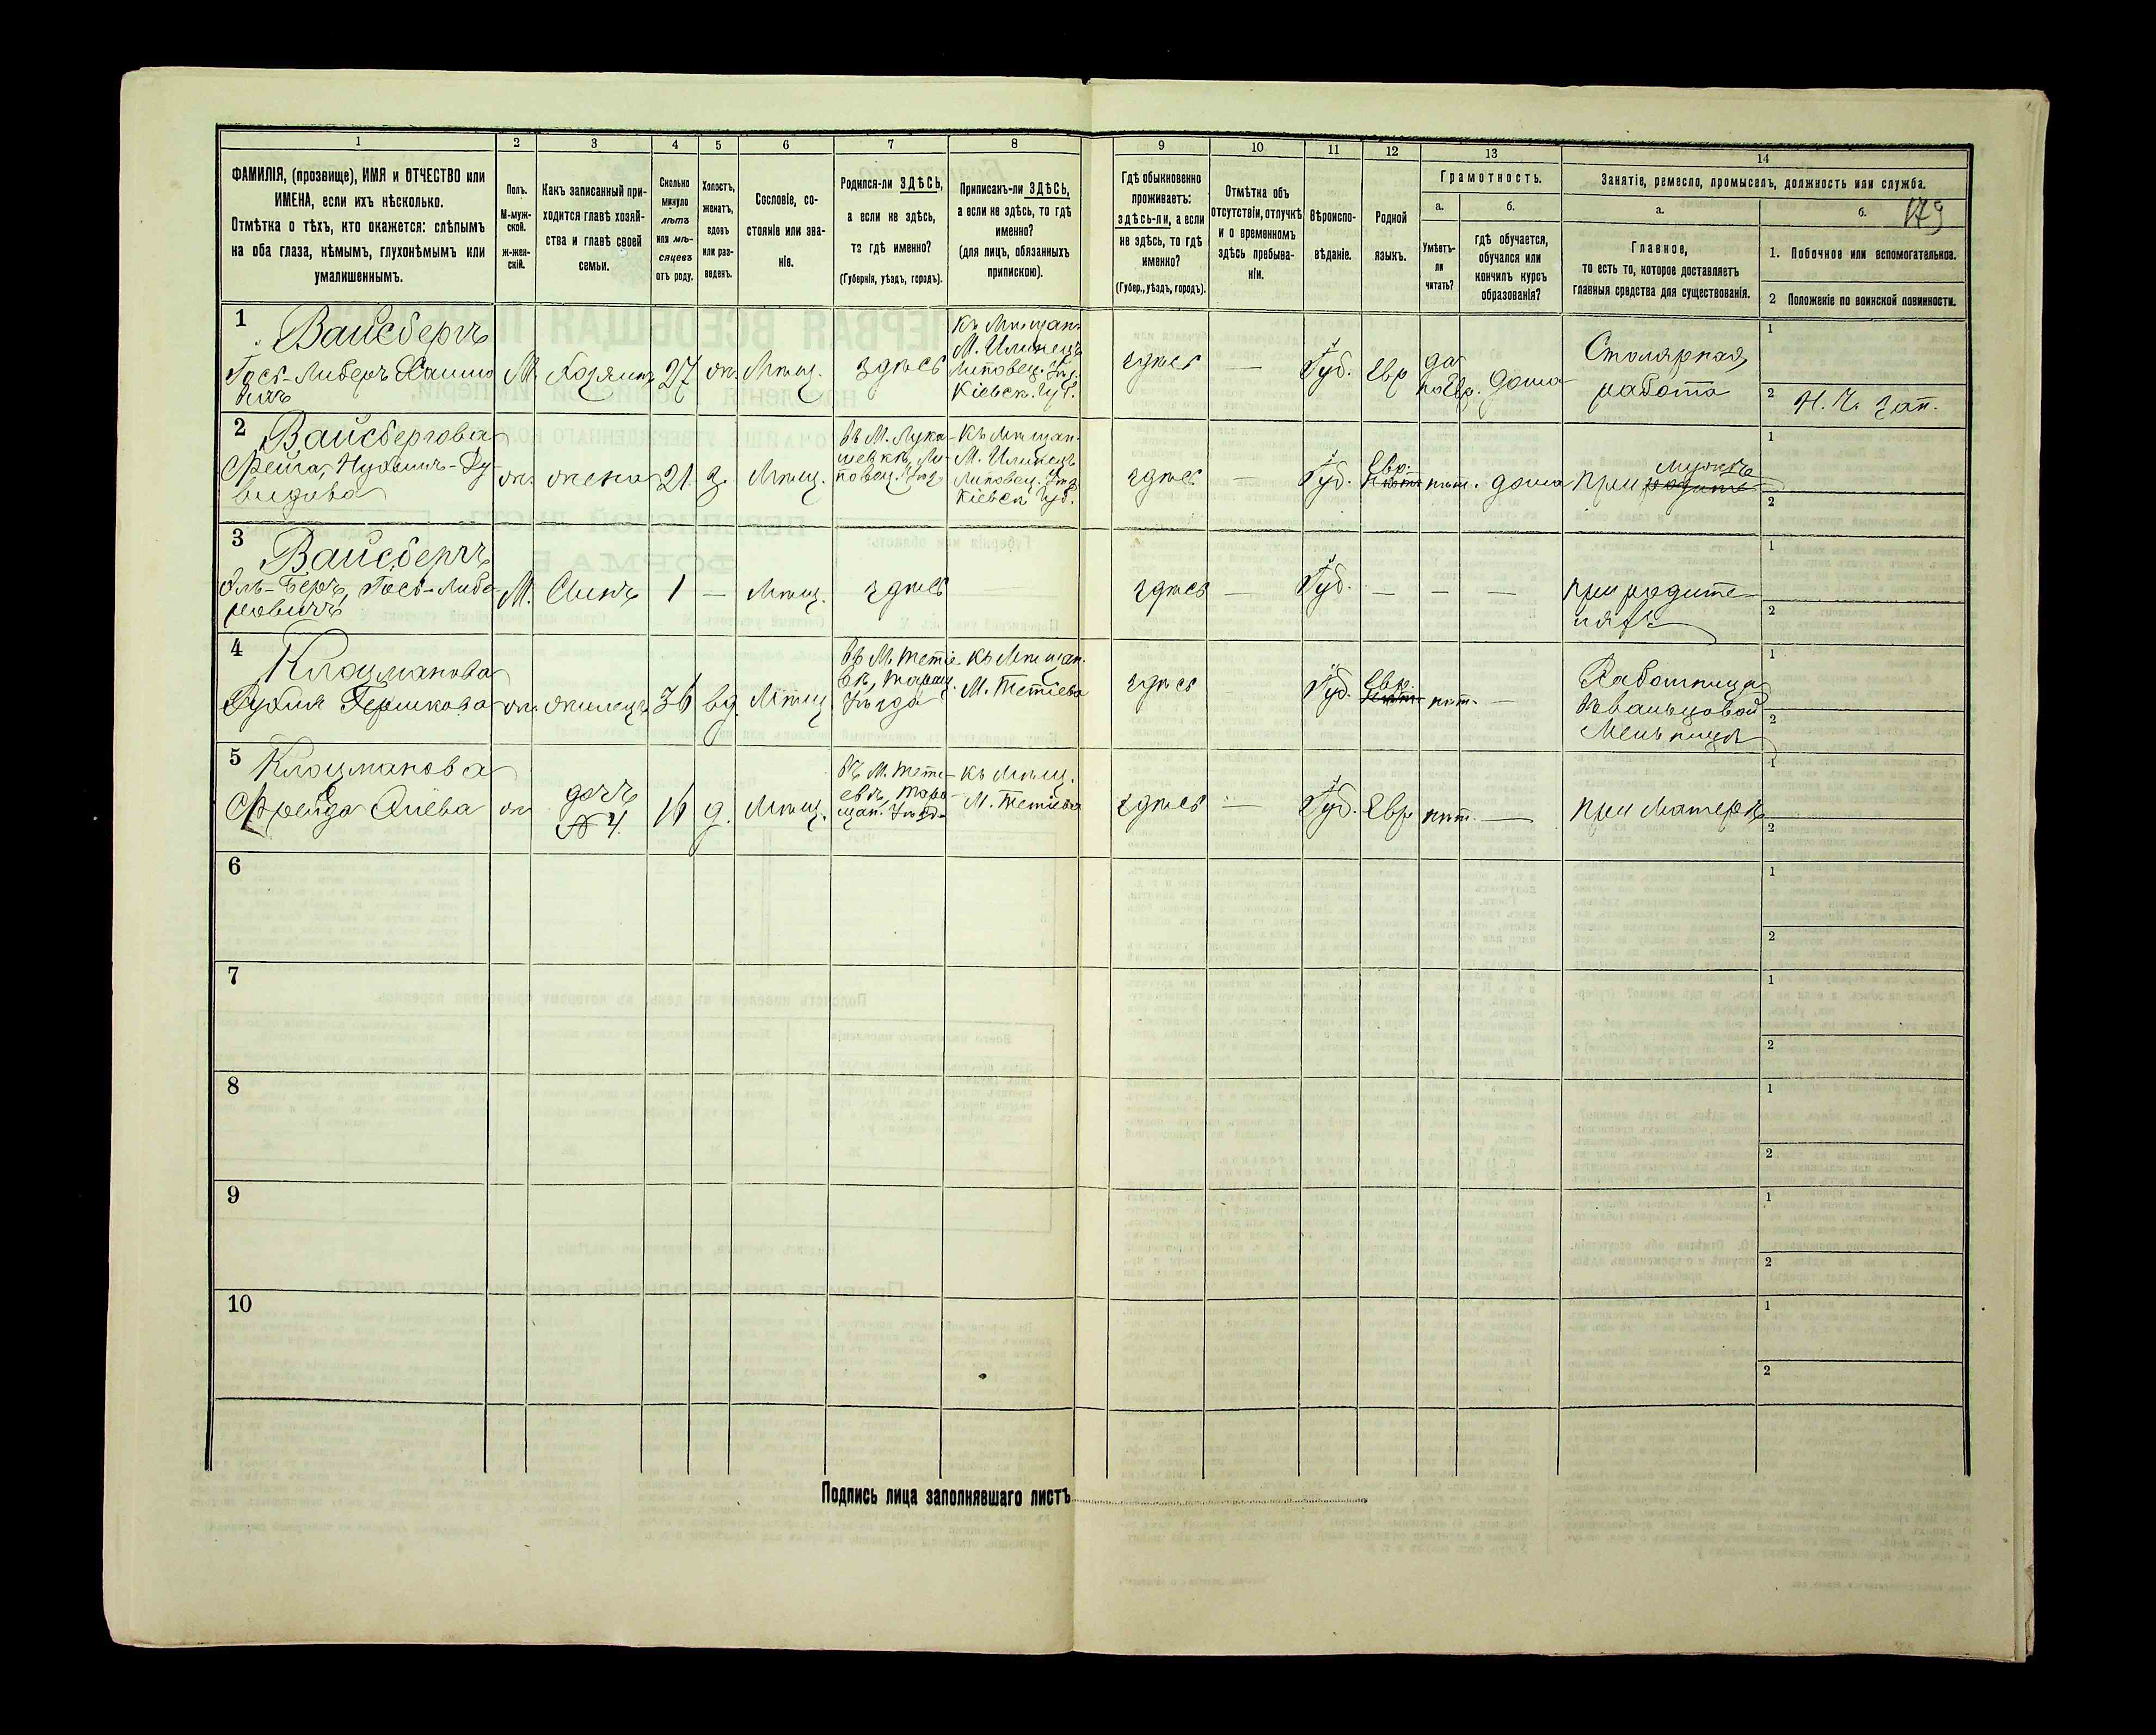 1 2 3 4 5 6 7 8 9 10 11 12 13 14
ФАМИЛІЯ, (прозвище), ИМЯ и ОТЧЕСТВО или
ИМЕНА, если ихъ нѣсколько.
Отмѣтка о тѣхъ, кто окажется: слѣпымъ
на оба глаза, нѣмымъ, глухонѣмымъ или
умалишеннымъ.
Полъ.
М-муж-
ской.
ж-жен-
скій.
Какъ записанный при-
ходится главѣ хозяй-
ства и главѣ своей
семьи.
Сколько
минуло
лѣтъ
или мѣ-
сяцевъ
отъ роду.
Холостъ,
женатъ,
вдовъ
или раз-
веденъ.
Сословіе, со-
стояніе или зва-
ніе.
Родился-ли ЗДѢСЬ,
а если не здѣсь,
то гдѣ именно?
(Губернія, уѣздъ, городъ).
Приписанъ-ли ЗДѢСЬ,
а если не здѣсь, то гдѣ
именно?
(для лицъ, обязанныхъ
припискою).
Гдѣ обыкновенно
проживаетъ:
здѣсь-ли, а если
не здѣсь, то гдѣ
именно?
(Губер., уѣздъ, городъ).
Отмѣтка объ
отсутствіи, отлучкѣ
и о временномъ
здѣсь пребыва-
ніи.
Вѣроиспо-
вѣданіе.
Родной
языкъ.
Грамотность.
а.
Умѣетъ-
ли
читать?
б.
гдѣ обучается,
обучался или
кончилъ курсъ
образованія?
Занятіе, ремесло, промыселъ, должность или служба.
а.
Главное,
то есть то, которое доставляетъ
главныя средства для существованія.
б.
179
1. Побочное или вспомогательное.
2 Положеніе по воинской повинности.
1 Вайсбергъ
Госъ-Либеръ Хаимо
вичъ
М. Хозяинъ 27 ж. Мѣщ. здѣсь
Къ Мѣщан.
М. Илинецъ
Липовец. Уѣз.
Кіевск. Губ.
здѣсь — Іуд. Евр
да
по Евр. дома
Столярная
работа
1
2 Н. Ч. зап.
2 Вайсбергова
Фейга, Нухимъ-Ду-
видова
ж. жена 21 з. Мѣщ.
въ М. Лука-
шевкѣ, Ли-
повец. Уѣз.
Къ Мѣщан.
М. Илинецъ
Липовец. Уѣз.
Кіевск. Губ.
здѣсь — Іуд. Евр. нѣт. дома
при мужѣ
1
2
3 Вайсбергъ
Эль-Беръ, Госъ-Либе-
ровичъ
М. Сынъ 1 — Мѣщ. здѣсь
здѣсь — Іуд. — — —
при родите-
ляхъ
1
2
4 Клоцманова
Рухля Гершкова
ж. жилецъ 36 вд. Мѣщ.
въ М. Тетіе-
вѣ, Таращ.
Уѣзда
Къ Мѣщан.
М. Тетіева
здѣсь Іуд. Евр. нѣт. —
Работница
въ вальцовой
Мельницѣ
1
2
5 Клоцманова
Фрейда Янева
ж.
дочь
№ 4.
16 д. Мѣщ.
въ М. Тети-
евѣ, Тара-
щан. Уѣзд.
Къ Мѣщ.
М. Тетіева
здѣсь — Іуд. Евр нѣт. — при матерѣ
1
2
6
1
2
7
1
2
8
1
2
9
1
2
10
1
2
Подпись лица заполнявшаго листъ